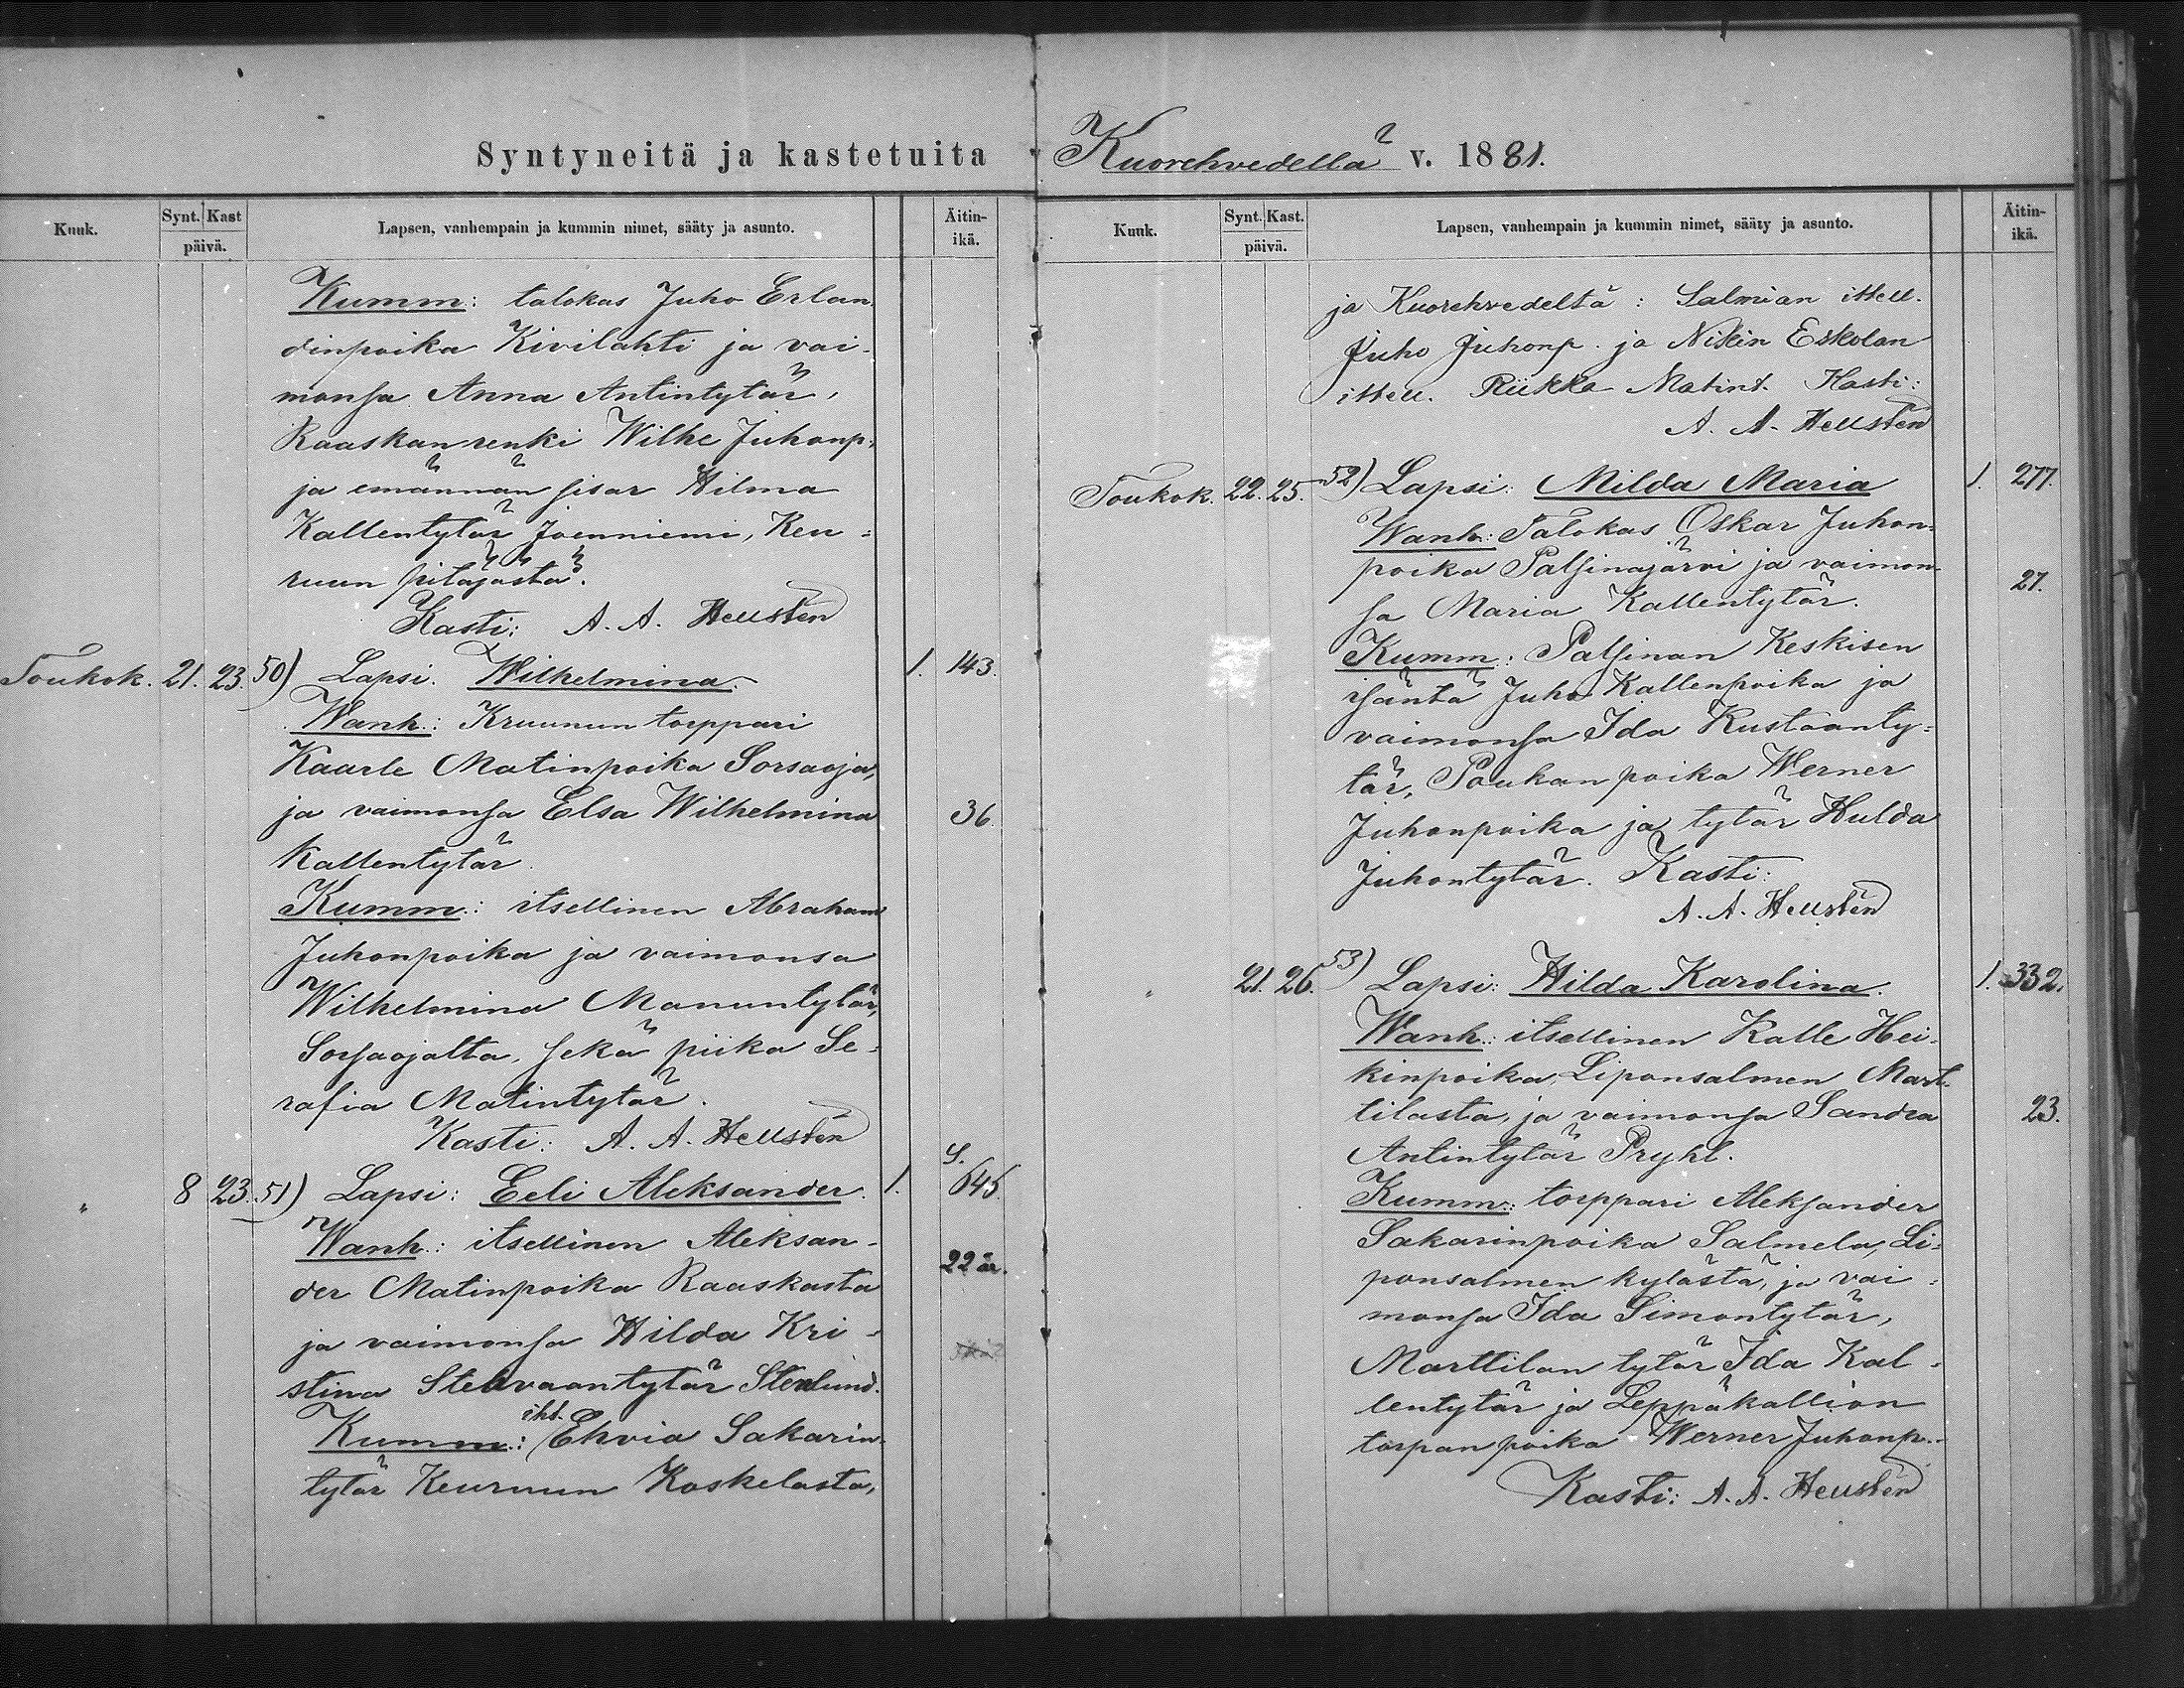 Syntyneitä ja kastetuita
Kuuk.
Synt. Kast
päivä.
Lapsen, vanhempain ja kummin nimet, sääty ja asunto.
Äitin-
ikä.
Kumm: talokas Juho Erlan
dinpoika Kivilahti ja vai-
monsa Anna Antintytär,
Raaskan renki Wilhe Juhonp.
ja emännän sisar Hilma
Kallentytär Joenniemi, Keu=
ruun pitäjästä.
Kasti: A. A. Hellstén
Toukok. 21. 23. 50) Lapsi. Wilhelmina. 1. 143.
Wanh.: Kruunun torppari
Kaarle Matinpoika Sorsaoja,
ja vaimonsa Elsa Wilhelmina 36
Kallentytär
Kumm.: itsellinen Abraham
Juhonpoika ja vaimonsa
Wilhelmina Manuntytär,
Sorsaojalta, sekä piika Se=
rafia Matintytär.
Kasti: A. A. Hellstén
S.
" 8 23. 51) Lapsi: Eeli Aleksander. 1. 645.
Wanh.: itsellinen Aleksan-
der Matinpoika Raaskasta 22 är.
ja vaimonsa Hilda Kri-
stina Stevaantytär Stenlund.
iht.
Kumm.: Ehvia Sakarin-
tytär Keuruun Koskelasta,
Kuorehvedellä v. 1881.
Kuuk.
Synt. Kast.
päivä.
Lapsen, vanhempain ja kummin nimet, sääty ja asunto.
Äitin-
ikä.
ja Kuorehvedeltä: Salmian itsell.
Juho Juhonp. ja Niskin Eskolan
itsell. Riikka Matint. Kasti:
A. A. Hellstén
Toukok. 22. 25. 52) Lapsi: Milda Maria 1. 277.
Wanh.: Talokas Oskar Juhon=
poika Palsinajärvi ja vaimon- 27.
sa Maria Kallentytär.
Kumm.: Palsinan Keskisen
isäntä Juho Kallenpoika ja
vaimonsa Ida Kustaanty=
tär, Poukan poika Werner
Juhonpoika ja tytär Hulda
Juhontytär. Kasti:
A. A. Hellstén
" 21. 26. 53) Lapsi: Hilda Karolina. 1. 332.
Wanh.: itsellinen Kalle Hei-
kinpoika, Liponsalmen Mart-
tilasta, ja vaimonsa Sandra 23.
Antintytär Prykl.
Kumm.: torppari Aleksander
Sakarinpoika Salmela, Li=
ponsalmen kylästä, ja vai=
monsa Ida Simontytär,
Marttilan tytär Ida Kal-
lentytär ja Leppäkallion
torpan poika Werner Juhonp.
Kasti: A. A. Hellstén